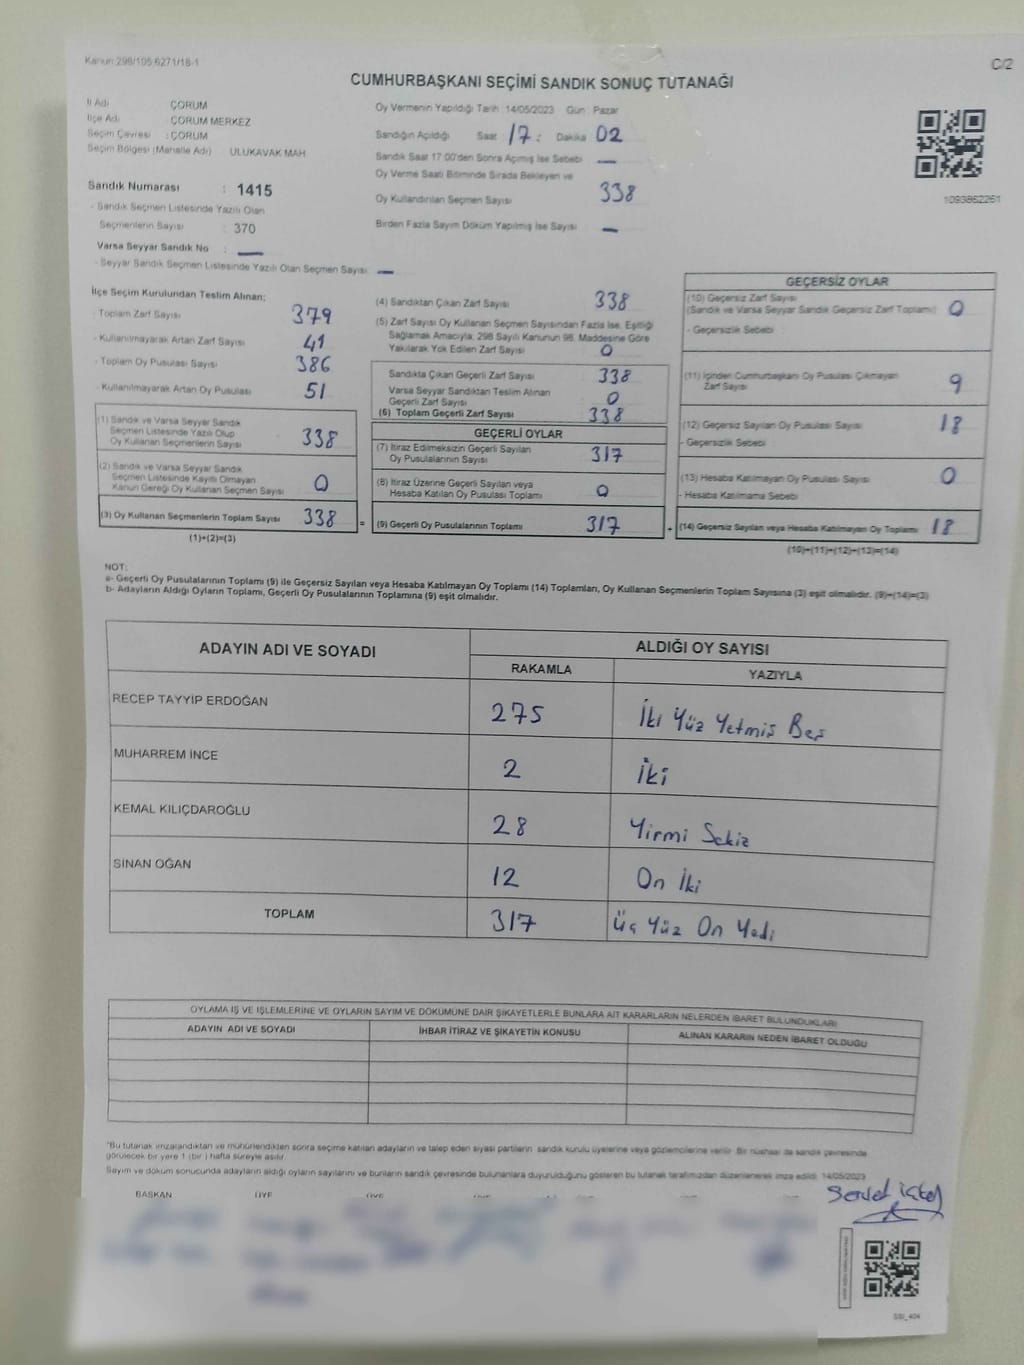 Kanun:298/105,6271/18-1
C/2
CUMHURBAŞKANI SEÇİMİ SANDIK SONUÇ TUTANAĞI
İl Adı ÇORUM
İlçe Adı ÇORUM MERKEZ
Seçim Çevresi : ÇORUM
Seçim Bölgesi (Mahalle Adı) ULUKAVAK MAH.
Oy Vermenin Yapıldığı Tarih :14/05/2023 Gün : Pazar
Sandığın Açıldığı Saat 17 : Dakika 02
Sandık Saat 17:00'den Sonra Açılmış İse Sebebi —
Oy Verme Saati Bitiminde Sırada Bekleyen ve
Oy Kullandırılan Seçmen Sayısı 338
Birden Fazla Sayım Döküm Yapılmış İse Sayısı —
1093862261
Sandık Numarası : 1415
- Sandık Seçmen Listesinde Yazılı Olan
Seçmenlerin Sayısı : 370
Varsa Seyyar Sandık No : —
- Seyyar Sandık Seçmen Listesinde Yazılı Olan Seçmen Sayısı : —
İlçe Seçim Kurulundan Teslim Alınan;
- Toplam Zarf Sayısı 379
- Kullanılmayarak Artan Zarf Sayısı 41
- Toplam Oy Pusulası Sayısı 386
- Kullanılmayarak Artan Oy Pusulası 51
(1) Sandık ve Varsa Seyyar Sandık
Seçmen Listesinde Yazılı Olup
Oy Kullanan Seçmenlerin Sayısı 338
(2) Sandık ve Varsa Seyyar Sandık
Seçmen Listesinde Kayıtlı Olmayan
Kanun Gereği Oy Kullanan Seçmen Sayısı 0
(3) Oy Kullanan Seçmenlerin Toplam Sayısı 338
(1)+(2)=(3)
(4) Sandıktan Çıkan Zarf Sayısı 338
(5) Zarf Sayısı Oy Kullanan Seçmen Sayısından Fazla İse, Eşitliği
Sağlamak Amacıyla, 298 Sayılı Kanunun 98. Maddesine Göre
Yakılarak Yok Edilen Zarf Sayısı 0
Sandıkta Çıkan Geçerli Zarf Sayısı 338
Varsa Seyyar Sandıktan Teslim Alınan
Geçerli Zarf Sayısı 0
(6) Toplam Geçerli Zarf Sayısı 338
GEÇERLİ OYLAR
(7) İtiraz Edilmeksizin Geçerli Sayılan
Oy Pusulalarının Sayısı 317
(8) İtiraz Üzerine Geçerli Sayılan veya
Hesaba Katılan Oy Pusulası Toplamı 0
= (9) Geçerli Oy Pusulalarının Toplamı 317
GEÇERSİZ OYLAR
(10) Geçersiz Zarf Sayısı
(Sandık ve Varsa Seyyar Sandık Geçersiz Zarf Toplamı) 0
- Geçersizlik Sebebi :
(11) İçinden Cumhurbaşkanı Oy Pusulası Çıkmayan
Zarf Sayısı 9
(12) Geçersiz Sayılan Oy Pusulası Sayısı 18
- Geçersizlik Sebebi
(13) Hesaba Katılmayan Oy Pusulası Sayısı 0
- Hesaba Katılmama Sebebi
+ (14) Geçersiz Sayılan veya Hesaba Katılmayan Oy Toplamı 18
(10)+(11)+(12)+(13)=(14)
NOT:
a- Geçerli Oy Pusulalarının Toplamı (9) ile Geçersiz Sayılan veya Hesaba Katılmayan Oy Toplamı (14) Toplamları, Oy Kullanan Seçmenlerin Toplam Sayısına (3) eşit olmalıdır. (9)+(14)=(3)
b- Adayların Aldığı Oyların Toplamı, Geçerli Oy Pusulalarının Toplamına (9) eşit olmalıdır.
ADAYIN ADI VE SOYADI
ALDIĞI OY SAYISI
RAKAMLA YAZIYLA
RECEP TAYYİP ERDOĞAN 275 İki Yüz Yetmiş Beş
MUHARREM İNCE 2 İki
KEMAL KILIÇDAROĞLU 28 Yirmi Sekiz
SİNAN OĞAN 12 On İki
TOPLAM 317 Üç Yüz On Yedi
OYLAMA İŞ VE İŞLEMLERİNE VE OYLARIN SAYIM VE DÖKÜMÜNE DAİR ŞİKAYETLERLE BUNLARA AİT KARARLARIN NELERDEN İBARET BULUNDUKLARI
ADAYIN ADI VE SOYADI İHBAR İTİRAZ VE ŞİKAYETİN KONUSU ALINAN KARARIN NEDEN İBARET OLDUĞU
*Bu tutanak imzalandıktan ve mühürlendikten sonra seçime katılan adayların ve talep eden siyasi partilerin sandık kurulu üyelerine veya gözlemcilerine verilir. Bir nüshası da sandık çevresinde
görülecek bir yere 1 (bir ) hafta süreyle asılır.
Sayım ve döküm sonucunda adayların aldığı oyların sayılarını ve bunların sandık çevresinde bulunanlara duyurulduğunu gösteren bu tutanak tarafımızdan düzenlenerek imza edildi. 14/05/2023
BAŞKAN ÜYE ÜYE